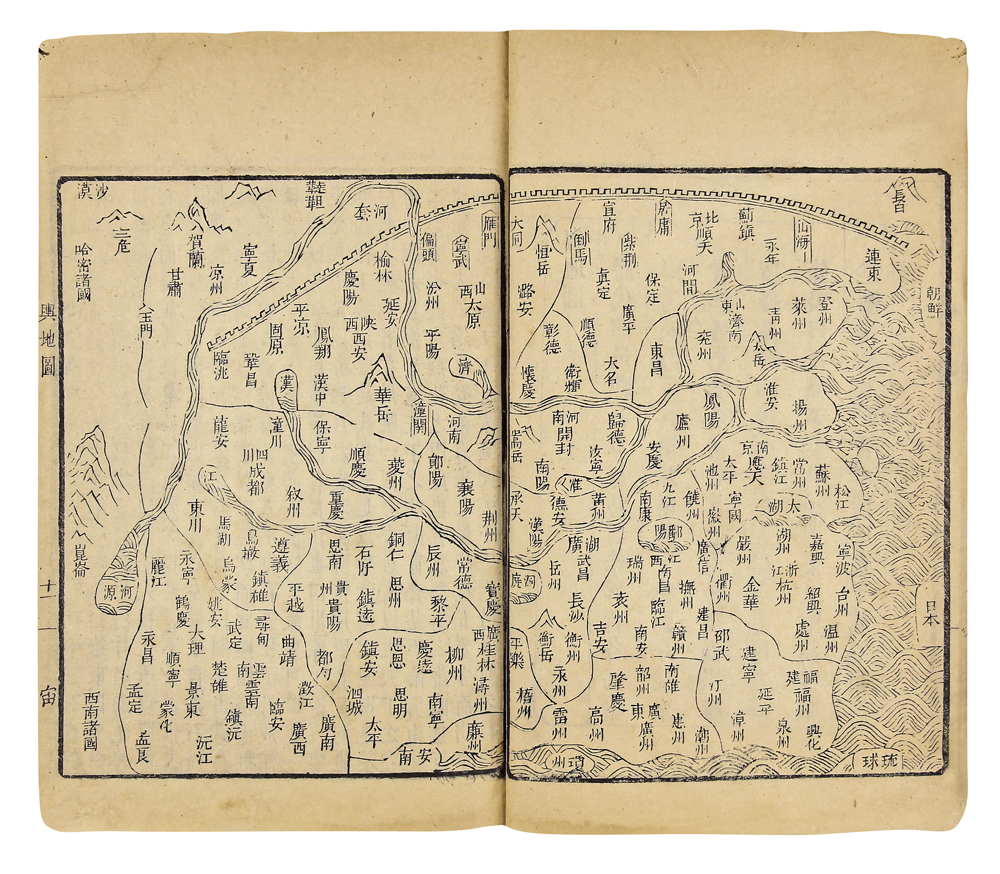 輿地圖
十一
宙
長白
朝鮮
日本
琉球
遼東
山海
永年
薊鎮
北京
順天
居庸
宣府
紫荆
倒馬
大同
恒岳
河間
保定
真定
廣平
順德
大名
潞安
彰德
衛輝
懷慶
登州
萊州
青州
山東
濟南
兗州
東昌
太岳
淮安
揚州
鳳陽
廬州
安慶
歸德
河南
開封
汝寧
嵩岳
南陽
淮
南京
應天
太平
池州
鎮江
常州
蘇州
松江
太湖
寧國
徽州
湖州
嘉興
寧波
浙江
杭州
紹興
台州
嚴州
金華
衢州
處州
温州
九江
南康
饒州
鄱陽
廣信
江西
南昌
撫州
建昌
瑞州
臨江
吉安
南安
贛州
邵武
建寧
汀州
延平
福建
福州
興化
泉州
漳州
承天
德安
黄州
漢陽
湖廣
武昌
岳州
洞庭
長沙
衡岳
衡州
永州
韶州
南雄
廣東
廣州
惠州
潮州
肇慶
高州
雷州
瓊州
平樂
梧州
雁門
寧武
偏頭
河套
韃靼
榆林
慶陽
延安
汾州
山西
太原
平陽
陝西
西安
鳳翔
平凉
固原
鞏昌
臨洮
漢
漢中
華岳
潼關
河南
濟
寧夏
賀蘭
凉州
甘肅
沙漠
三危
哈密諸國
玉門
龍安
潼川
保寧
順慶
夔州
鄖陽
襄陽
荆州
四川
成都
江
叙州
重慶
東川
馬湖
遵義
思南
石阡
銅仁
辰州
常德
寶慶
崑崙
河源
麗江
永寧
鶴慶
烏蒙
鎮雄
姚安
平越
貴州
貴陽
思州
鎮遠
黎平
永昌
大理
武定
尋甸
曲靖
順寧
楚雄
雲南
雲南
景東
蒙化
鎮沅
沅江
臨安
澂江
都勻
鎮安
思恩
慶遠
柳州
廣西
桂林
潯州
泗城
思明
南寧
廣西
廣南
太平
安南
廉州
孟定
孟艮
西南諸國